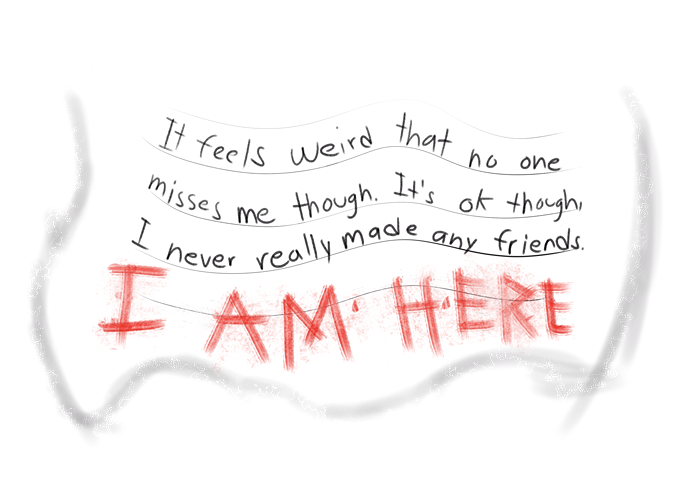 It feels weird that no one
misses me though. It's ok though,
I never really made any friends.
I AM HERE